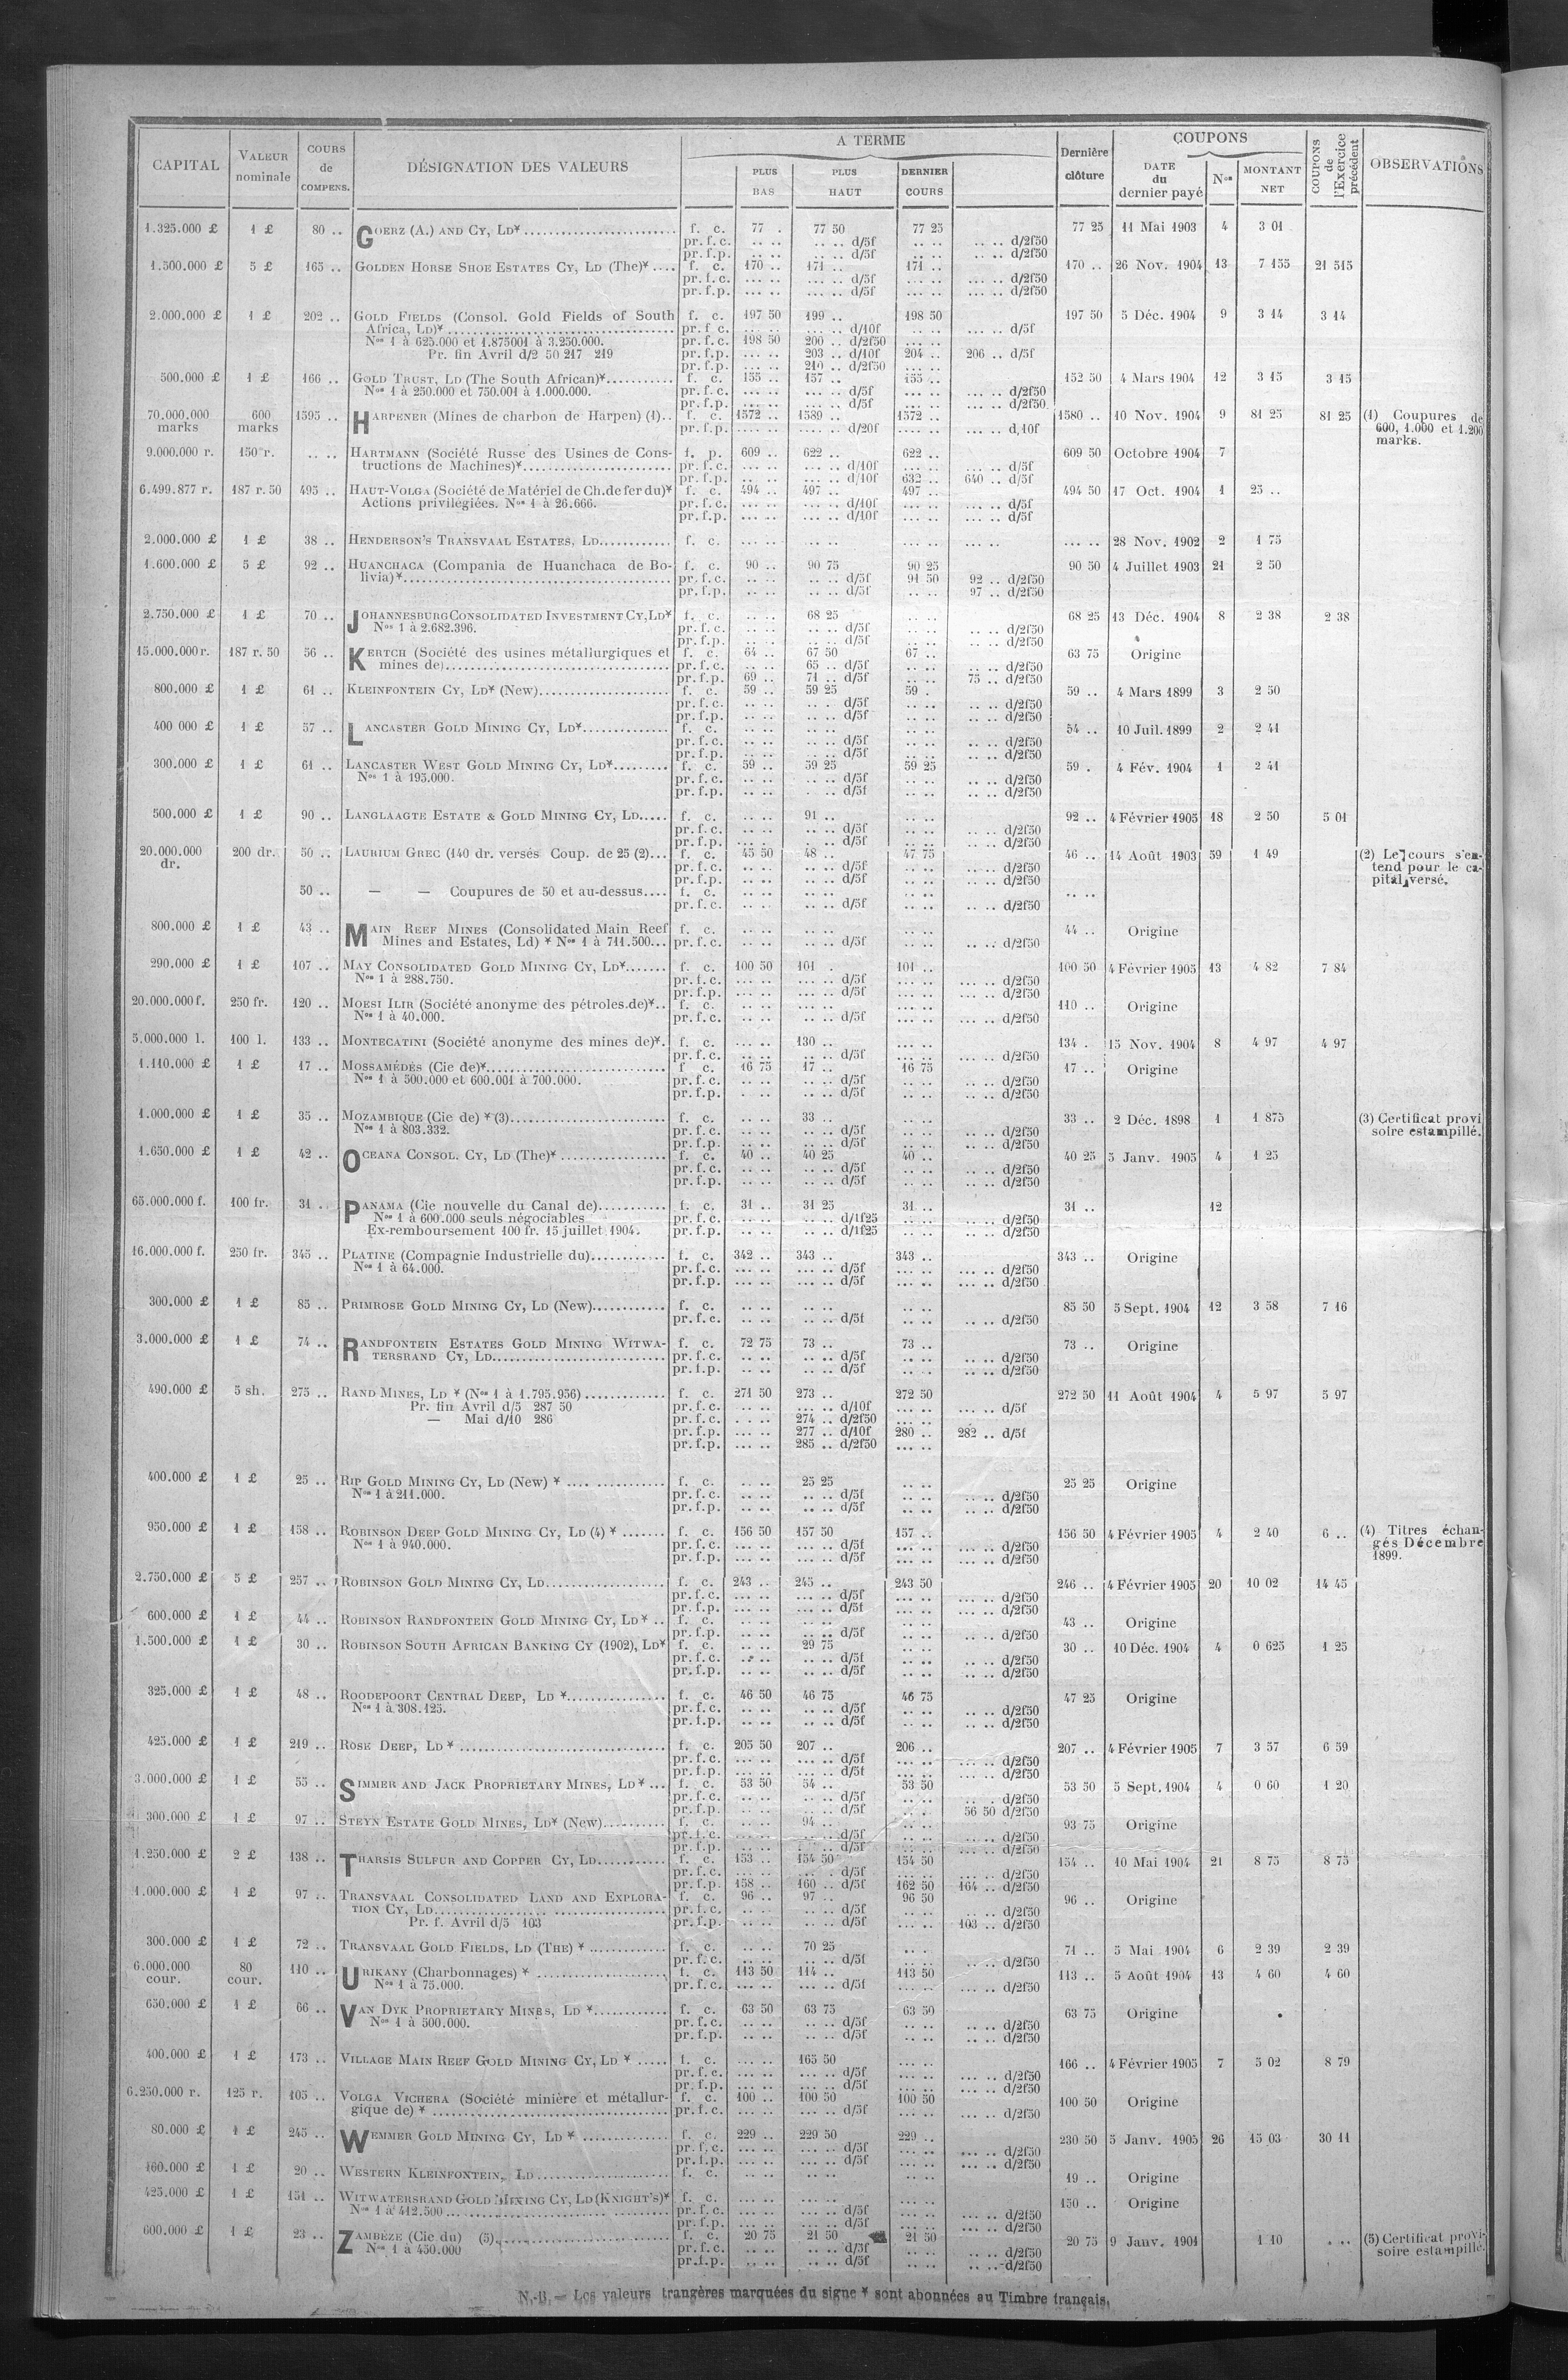 CAPITAL | VALEUR nominale | COURS de COMPENS. | DÉSIGNATION DES VALEURS | A TERME | PLUS BAS | PLUS HAUT | DERNIER COURS | Dernière clôture | COUPONS | DATE du dernier payé | Nos | MONTANT NET | COUPONS de l'Exercice précédent | OBSERVATIONS
1.325.000 £ 1 £ 80 .. GOERZ (A.) AND CY, LD* f. c. 77 . 77 50 77 25 77 25 11 Mai 1903 4 3 01
pr. f. c. .. .. .. .. d/5f .. .. .. .. d/2f50
pr. f.p. .. .. .. .. d/5f .. .. .. .. d/2f50
1.500.000 £ 5 £ 165 .. GOLDEN HORSE SHOE ESTATES CY, LD (The)* .... f. c. 170 .. 171 .. 171 .. 170 .. 26 Nov. 1904 13 7 155 21 515
pr. f. c. ... .. ... .. d/5f ... .. ... .. d/2f50
pr. f.p. ... .. ... .. d/5f ... .. ... .. d/2f50
2.000.000 £ 1 £ 202 .. GOLD FIELDS (Consol. Gold Fields of South f. c. 197 50 199 .. 198 50 197 50 5 Déc. 1904 9 3 14 3 14
Africa, LD)* pr. f. c. ... .. ... .. d/10f ... .. ... .. d/5f
Nos 1 à 625.000 et 1.875001 à 3.250.000. pr. f. c. 198 50 200 .. d/2f50 ... ..
Pr. fin Avril d/2 50 217 219 pr. f.p. ... .. 203 .. d/10f 204 .. 206 .. d/5f
pr. f.p. ... .. 210 .. d/2f50 ... ..
500.000 £ 1 £ 166 .. GOLD TRUST, LD (The South African)* f. c. 155 .. 157 .. 155 .. 152 50 4 Mars 1904 12 3 15 3 15
Nos 1 à 250.000 et 750.001 à 1.000.000. pr. f. c. ... .. ... .. d/5f ... .. ... .. d/2f50
pr. f.p. ... .. ... .. d/5f ... .. ... .. d/2f50
70.000.000 marks 600 marks 1595 .. HARPENER (Mines de charbon de Harpen) (1).. f. c. 1572 .. 1589 .. 1572 .. 1580 .. 10 Nov. 1904 9 81 25 81 25 (1) Coupures de
pr. f.p. .... .. .... .. d/20f .... .. .... .. d,10f 600, 1.000 et 1.200
marks.
9.000.000 r. 150 r. .. .. HARTMANN (Société Russe des Usines de Cons- f. p. 609 .. 622 .. 622 .. 609 50 Octobre 1904 7
tructions de Machines)* pr. f. c. ... .. ... .. d/10f ... .. ... .. d/5f
pr. f.p. ... .. ... .. d/10f 632 .. 640 .. d/5f
6.499.877 r. 187 r. 50 495 .. HAUT-VOLGA (Société de Matériel de Ch.de fer du)* f. c. 494 .. 497 .. 497 .. 494 50 17 Oct. 1904 1 25 ..
Actions privilégiées. Nos 1 à 26.666. pr. f. c. ... .. ... .. d/10f ... .. ... .. d/5f
pr. f.p. ... .. ... .. d/10f ... .. ... .. d/5f
2.000.000 £ 1 £ 38 .. HENDERSON'S TRANSVAAL ESTATES, LD f. c. ... .. ... .. ... .. ... .. ... .. 28 Nov. 1902 2 1 75
1.600.000 £ 5 £ 92 .. HUANCHACA (Compania de Huanchaca de Bo- f. c. 90 .. 90 75 90 25 90 50 4 Juillet 1903 21 2 50
livia)* pr. f. c. .. .. .. .. d/5f 91 50 92 .. d/2f50
pr. f.p. .. .. .. .. d/5f 97 .. d/2f50
2.750.000 £ 1 £ 70 .. JOHANNESBURG CONSOLIDATED INVESTMENT CY, LD* f. c. .. .. 68 25 .. .. 68 25 13 Déc. 1904 8 2 38 2 38
Nos 1 à 2.682.396. pr. f. c. .. .. .. .. d/5f .. .. .. .. d/2f50
pr. f.p. .. .. .. .. d/5f .. .. .. .. d/2f50
15.000.000 r. 187 r. 50 56 .. KERTCH (Société des usines métallurgiques et f. c. 64 .. 67 50 67 .. 63 75 Origine
mines de) pr. f. c. .. .. 65 .. d/5f .. .. .. .. d/2f50
pr. f.p. 69 .. 71 .. d/5f .. .. 75 .. d/2f50
800.000 £ 1 £ 61 .. KLEINFONTEIN CY, LD* (New) f. c. 59 .. 59 25 59 . 59 .. 4 Mars 1899 3 2 50
pr. f. c. .. .. .. .. d/5f .. .. .. .. d/2f50
pr. f.p. .. .. .. .. d/5f .. .. .. .. d/2f50
400 000 £ 1 £ 57 .. LANCASTER GOLD MINING CY, LD* f. c. .. .. .. .. .. .. 54 .. 10 Juil. 1899 2 2 41
pr. f. c. .. .. .. .. d/5f .. .. .. .. d/2f50
pr. f.p. .. .. .. .. d/5f .. .. .. .. d/2f50
300.000 £ 1 £ 61 .. LANCASTER WEST GOLD MINING CY, LD* f. c. 59 .. 59 25 59 25 59 . 4 Fév. 1904 1 2 41
Nos 1 à 195.000. pr. f. c. .. .. .. .. d/5f .. .. .. .. d/2f50
pr. f.p. .. .. . .. d/5f .. .. .. .. d/2f50
500.000 £ 1 £ 90 .. LANGLAAGTE ESTATE & GOLD MINING CY, LD f. c. .. .. 91 .. .. .. 92 .. 4 Février 1905 18 2 50 5 01
pr. f. c. .. .. .. .. d/5f .. .. .. .. d/2f50
pr. f.p. .. .. .. .. d/5f .. .. .. .. d/2f50
20.000.000 dr. 200 dr. 50 .. LAURIUM GREC (140 dr. versés Coup. de 25 (2)... f. c. 45 50 48 .. 47 75 46 .. 14 Août 1903 59 1 49 (2) Le cours s'en-
pr. f. c. .. .. .. .. d/5f .. .. .. .. d/2f50 tend pour le ca-
pr. f.p. .. .. .. .. d/5f .. .. .. .. d/2f50 pital versé.
50 .. — — Coupures de 50 et au-dessus.... f. c. .. .. .. .. .. .. .. ..
pr. f. c. .. .. .. .. d/5f .. .. .. .. d/2f50
800.000 £ 1 £ 43 .. MAIN REEF MINES (Consolidated Main Reef f. c. .. .. .. .. .. .. 44 .. Origine
Mines and Estates, Ld) * Nos 1 à 711.500... pr. f. c. .. .. .. .. d/5f .. .. .. .. d/2f50
290.000 £ 1 £ 107 .. MAY CONSOLIDATED GOLD MINING CY, LD* f. c. 100 50 101 . 101 .. 100 50 4 Février 1905 13 4 82 7 84
Nos 1 à 288.750. pr. f. c. ... .. ... .. d/5f ... .. ... .. d/2f50
pr. f.p. ... .. ... .. d/5f ... .. ... .. d/2f50
20.000.000 f. 250 fr. 120 .. MOESI ILIR (Société anonyme des pétroles.de)*.. f. c. .. .. .. .. .. .. 110 .. Origine
Nos 1 à 40.000. pr. f. c. ... .. ... .. d/5f ... .. ... .. d/2f50
5.000.000 l. 100 l. 133 .. MONTECATINI (Société anonyme des mines de)*. f. c. ... .. 130 .. 134 . 15 Nov. 1904 8 4 97 4 97
pr. f. c. .. .. .. .. d/5f ... .. ... .. d/2f50
1.110.000 £ 1 £ 17 .. MOSSAMÉDÈS (Cie de)* f c. 16 75 17 .. 16 75 17 .. Origine
Nos 1 à 500.000 et 600.001 à 700.000. pr. f. c. .. .. .. .. d/5f .. .. .. .. d/2f50
pr. f.p. .. .. .. .. d/5f .. .. .. .. d/2f50
1.000.000 £ 1 £ 35 .. MOZAMBIQUE (Cie de) * (3) f. c. .. .. 33 .. .. .. 33 .. 2 Déc. 1898 1 1 875 (3) Certificat provi
Nos 1 à 803.332. pr. f. c. .. .. .. .. d/5f .. .. .. .. d/2f50 soire estampillé.
pr. f.p. .. .. .. .. d/5f .. .. .. .. d/2f50
1.650.000 £ 1 £ 42 .. OCEANA CONSOL. CY, LD (The)* f. c. 40 .. 40 25 40 .. 40 25 5 Janv. 1905 4 1 25
pr. f. c. .. .. .. .. d/5f .. .. .. .. d/2f50
pr. f.p. .. .. .. .. d/5f .. .. .. .. d/2f50
65.000.000 f. 100 fr. 31 .. PANAMA (Cie nouvelle du Canal de) f. c. 31 .. 31 25 31 .. 31 .. 12
Nos 1 à 600.000 seuls négociables pr. f. c. .. .. .. .. d/1f25 .. .. .. .. d/2f50
Ex-remboursement 100 fr. 15 juillet 1904. pr. f.p. .. .. .. .. d/1f25 .. .. .. .. d/2f50
16.000.000 f. 250 fr. 345 .. PLATINE (Compagnie Industrielle du) f. c. 342 .. 343 .. 343 .. 343 .. Origine
Nos 1 à 64.000. pr. f. c. ... .. ... .. d/5f ... .. ... .. d/2f50
pr. f.p. ... .. ... .. d/5f ... .. ... .. d/2f50
300.000 £ 1 £ 85 .. PRIMROSE GOLD MINING CY, LD (New) f. c. .. .. .. .. .. .. 85 50 5 Sept. 1904 12 3 58 7 16
pr. f. c. .. .. .. .. d/5f .. .. .. .. d/2f50
3.000.000 £ 1 £ 74 .. RANDFONTEIN ESTATES GOLD MINING WITWA- f. c. 72 75 73 .. 73 .. 73 .. Origine
TERSRAND CY, LD pr. f. c. .. .. .. .. d/5f .. .. .. .. d/2f50
pr. f.p. .. .. .. .. d/5f .. .. .. .. d/2f50
490.000 £ 5 sh. 275 .. RAND MINES, LD * (Nos 1 à 1.795.956) f. c. 271 50 273 .. 272 50 272 50 11 Août 1904 4 5 97 5 97
Pr. fin Avril d/5 287 50 pr. f. c. ... .. ... .. d/10f ... .. ... .. d/5f
— Mai d/10 286 pr. f. c. ... .. 274 .. d/2f50 ... ..
pr. f.p. ... .. 277 .. d/10f 280 .. 282 .. d/5f
pr. f.p. ... .. 285 .. d/2f50 ... ..
400.000 £ 1 £ 25 .. RIP GOLD MINING CY, LD (New) * f. c. .. .. 25 25 .. .. 25 25 Origine
Nos 1 à 211.000. pr. f. c. .. .. .. .. d/5f .. .. .. .. d/2f50
pr. f.p. .. .. .. .. d/5f .. .. .. .. d/2f50
950.000 £ 1 £ 158 .. ROBINSON DEEP GOLD MINING CY, LD (4) * f. c. 156 50 157 50 157 .. 156 50 4 Février 1905 4 2 40 6 .. (4) Titres échan-
Nos 1 à 940.000. pr. f. c. ... .. ... .. d/5f ... .. ... .. d/2f50 gés Décembre
pr. f.p. ... .. ... .. d/5f ... .. ... .. d/2f50 1899.
2.750.000 £ 5 £ 257 .. ROBINSON GOLD MINING CY, LD f. c. 243 .. 245 .. 243 50 246 .. 4 Février 1905 20 10 02 14 45
pr. f. c. ... .. ... .. d/5f ... .. ... .. d/2f50
pr. f.p. ... .. ... .. d/5f ... .. ... .. d/2f50
600.000 £ 1 £ 44 .. ROBINSON RANDFONTEIN GOLD MINING CY, LD * .. f. c. .. .. .. .. .. .. 43 .. Origine
pr. f.p. .. .. .. .. d/5f .. .. .. .. d/2f50
1.500.000 £ 1 £ 30 .. ROBINSON SOUTH AFRICAN BANKING CY (1902), LD* f. c. .. .. 29 75 .. .. 30 .. 10 Déc. 1904 4 0 625 1 25
pr. f. c. .. .. .. .. d/5f .. .. .. .. d/2f50
pr. f.p. .. .. .. .. d/5f .. .. .. .. d/2f50
325.000 £ 1 £ 48 .. ROODEPOORT CENTRAL DEEP, LD * f. c. 46 50 46 75 46 75 47 25 Origine
Nos 1 à 308.125. pr. f. c. .. .. .. .. d/5f .. .. .. .. d/2f50
pr. f.p. .. .. .. .. d/5f .. .. .. .. d/2f50
425.000 £ 1 £ 219 .. ROSE DEEP, LD * f. c. 205 50 207 .. 206 .. 207 .. 4 Février 1905 7 3 57 6 59
pr. f. c. ... .. ... .. d/5f ... .. ... .. d/2f50
pr. f.p. ... .. ... .. d/5f ... .. ... .. d/2f50
3.000.000 £ 1 £ 55 .. SIMMER AND JACK PROPRIETARY MINES, LD * ... f. c. 53 50 54 .. 53 50 53 50 5 Sept. 1904 4 0 60 1 20
pr. f. c. .. .. .. .. d/5f .. .. .. . d/2f50
pr. f.p. .. .. .. .. d/5f .. . 56 50 d/2f50
300.000 £ 1 £ 97 .. STEYN ESTATE GOLD MINES, LD* (New) f. c. .. .. 94 .. .. .. 93 75 Origine
pr. f. c. .. .. .. .. d/5f .. .. .. .. d/2f50
pr. f.p. .. .. .. .. d/5f .. .. ... .. d/2f50
1.250.000 £ 2 £ 138 .. THARSIS SULFUR AND COPPER CY, LD f. c. 153 .. 154 50 154 50 154 .. 10 Mai 1904 21 8 75 8 75
pr. f. c. ... .. ... . d/5f ... .. ... .. d/2f50
pr. f.p. 158 .. 160 .. d/5f 162 50 164 .. d/2f50
1.000.000 £ 1 £ 97 .. TRANSVAAL CONSOLIDATED LAND AND EXPLORA- f. c. 96 .. 97 .. 96 50 96 .. Origine
TION CY, LD pr. f. c. .. .. .. .. d/5f .. .. .. .. d/2f50
Pr. f. Avril d/5 103 pr. f.p. .. .. .. .. d/5f ... .. 103 .. d/2f50
300.000 £ 1 £ 72 .. TRANSVAAL GOLD FIELDS, LD (THE) * f. c. .. .. 70 25 .. . 71 .. 5 Mai 1904 6 2 39 2 39
pr. f. c. .. .. .. .. d/5f .. .. .. .. d/2f50
6.000.000 cour. 80 cour. 110 .. URIKANY (Charbonnages) * f. c. 113 50 114 .. 113 50 113 .. 5 Août 1904 13 4 60 4 60
Nos 1 à 75.000. pr. f. c. ... .. ... .. d/5f ... .. ... .. d/2f50
650.000 £ 1 £ 66 .. VAN DYK PROPRIETARY MINES, LD * f. c. 63 50 63 75 63 50 63 75 Origine
Nos 1 à 500.000. pr. f. c. .. .. .. .. d/5f .. .. .. .. d/2f50
pr. f.p. .. .. .. .. d/5f .. .. .. .. d/2f50
400.000 £ 1 £ 173 .. VILLAGE MAIN REEF GOLD MINING CY, LD * f. c. ... .. 165 50 ... .. 166 .. 4 Février 1905 7 5 02 8 79
pr. f. c. ... .. ... .. d/5f ... .. ... .. d/2f50
pr. f.p. ... .. ... .. d/5f ... .. ... .. d/2f50
6.250.000 r. 125 r. 105 .. VOLGA VICHERA (Société minière et métallur- f. c. 100 .. 100 50 100 50 100 50 Origine
gique de) * pr. f. c. ... .. ... .. d/5f ... .. ... .. d/2f50
80.000 £ 1 £ 245 .. WEMMER GOLD MINING CY, LD * f. c. 229 .. 229 50 229 .. 230 50 5 Janv. 1905 26 15 03 30 11
pr. f. c. ... .. ... .. d/5f ... .. ... .. d/2f50
pr. f.p. ... .. ... .. d/5f ... .. ... .. d/2f50
160.000 £ 1 £ 20 .. WESTERN KLEINFONTEIN, LD f. c. .. .. .. .. .. .. 19 .. Origine
425.000 £ 1 £ 151 .. WITWATERSRAND GOLD MINING CY, LD (KNIGHT'S)* f. c. 150 .. Origine
Nos 1 à 412.500 pr. f. c. ... .. ... .. d/5f ... .. ... .. d/2f50
pr. f.p. ... .. ... .. d/5f ... .. ... .. d/2f50
600.000 £ 1 £ 23 .. ZAMBÈZE (Cie du) (5) f. c. 20 75 21 50 21 50 20 75 9 Janv. 1901 1 10 . .. (5) Certificat provi-
Nos 1 à 450.000 pr. f. c. .. .. .. .. d/5f .. .. .. .. d/2f50 soire estampillé.
pr. f.p. .. .. .. .. d/5f .. .. .. .. d/2f50
N.-B. — Les valeurs trangères marquées du signe * sont abonnées au Timbre français.